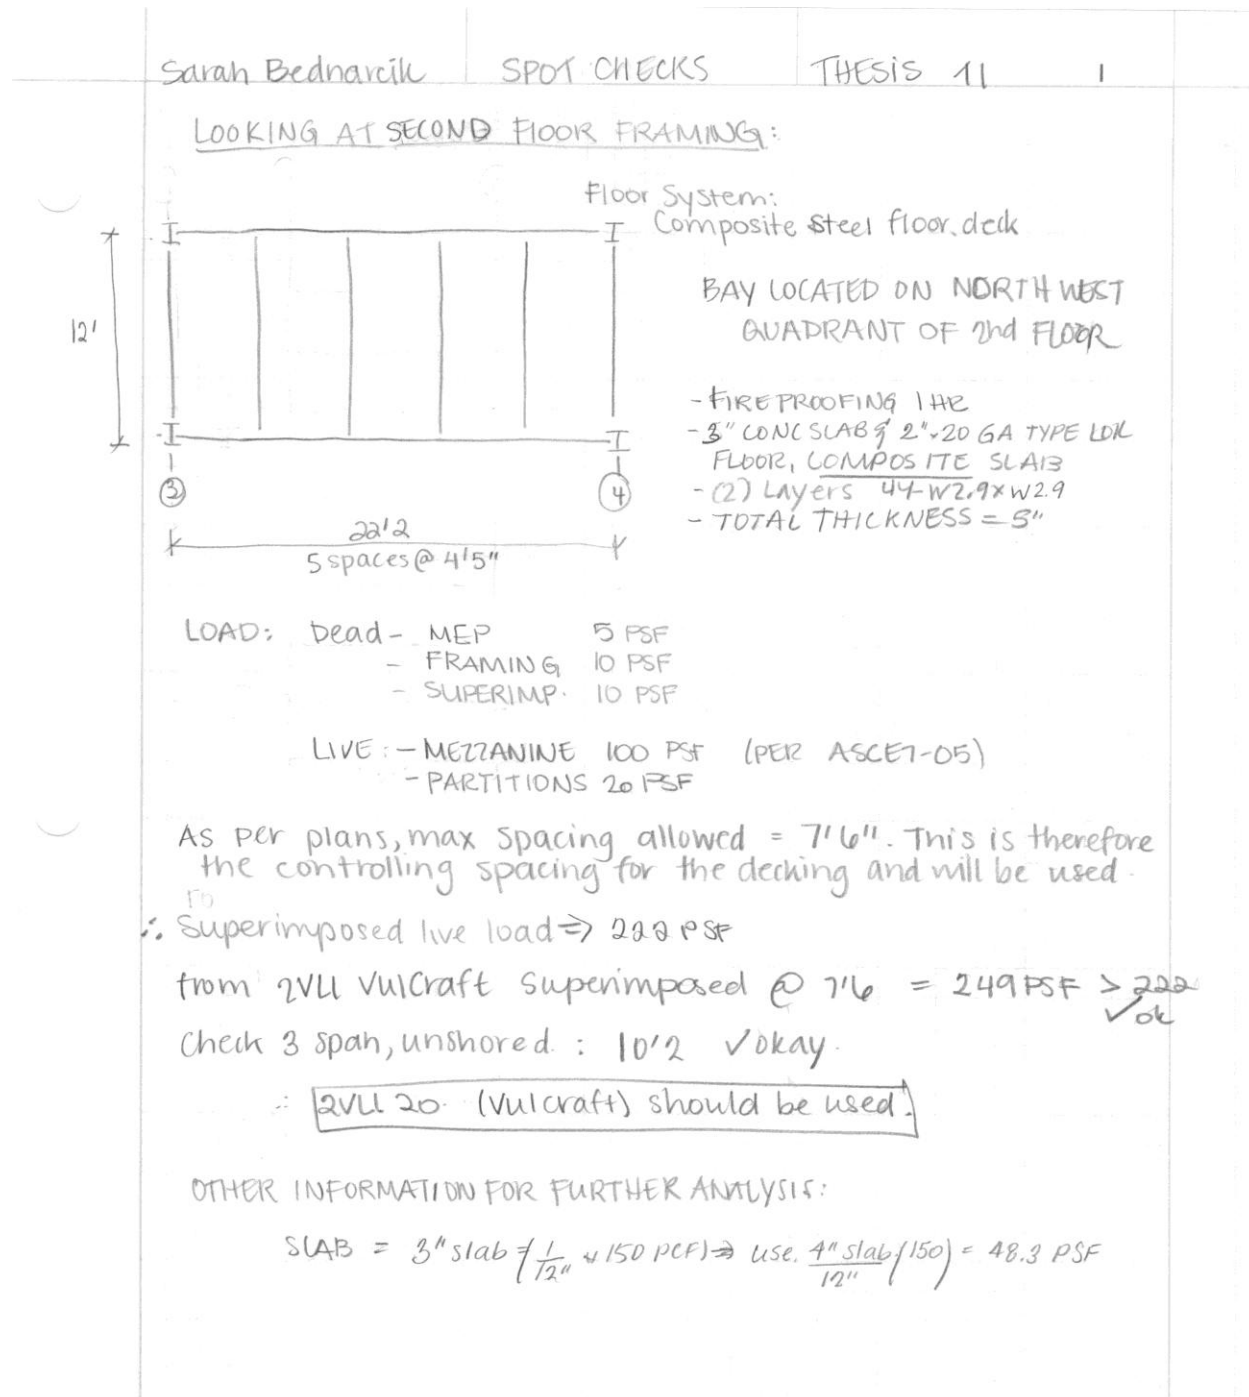 Sarah Bednarcik SPOT CHECKS THESIS 11 1
LOOKING AT SECOND FLOOR FRAMING:
Floor System:
Composite steel floor deck
BAY LOCATED ON NORTH WEST
QUADRANT OF 2nd FLOOR
12'
- FIREPROOFING 1 HR
- 3" CONC SLAB & 2"-20 GA TYPE LOK
FLOOR, COMPOSITE SLAB
- (2) Layers 44-W2.9xW2.9
- TOTAL THICKNESS = 5"
3 4
22'2
5 spaces @ 4'5"
LOAD: Dead - MEP 5 PSF
- FRAMING 10 PSF
- SUPERIMP. 10 PSF
LIVE: - MEZZANINE 100 PSF (PER ASCE7-05)
- PARTITIONS 20 PSF
As per plans, max spacing allowed = 7'6". This is therefore
the controlling spacing for the decking and will be used.
∴ Superimposed live load ⇒ 222 PSF
from 2VLI VulCraft Superimposed @ 7'6 = 249 PSF > 222
✓ok
Check 3 span, unshored : 10'2 ✓okay.
∴ 2VLI 20. (Vulcraft) should be used.
OTHER INFORMATION FOR FURTHER ANALYSIS:
SLAB = 3" slab (1/12" * 150 PCF) ⇒ use. 4" slab/12" (150) = 48.3 PSF